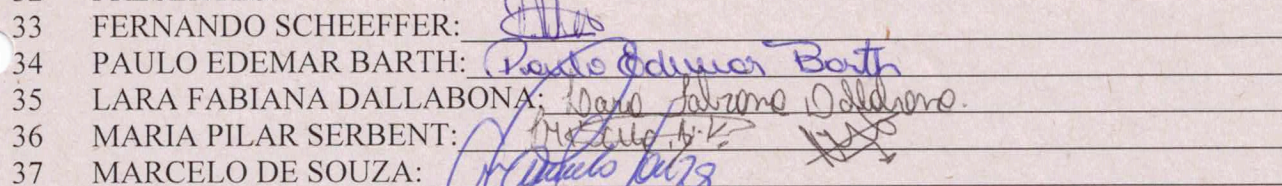 33 FERNANDO SCHEEFFER:
34 PAULO EDEMAR BARTH: Paulo Edemar Barth
35 LARA FABIANA DALLABONA: Lara Fabiana Dallabona.
36 MARIA PILAR SERBENT:
37 MARCELO DE SOUZA: Marcelo Souza